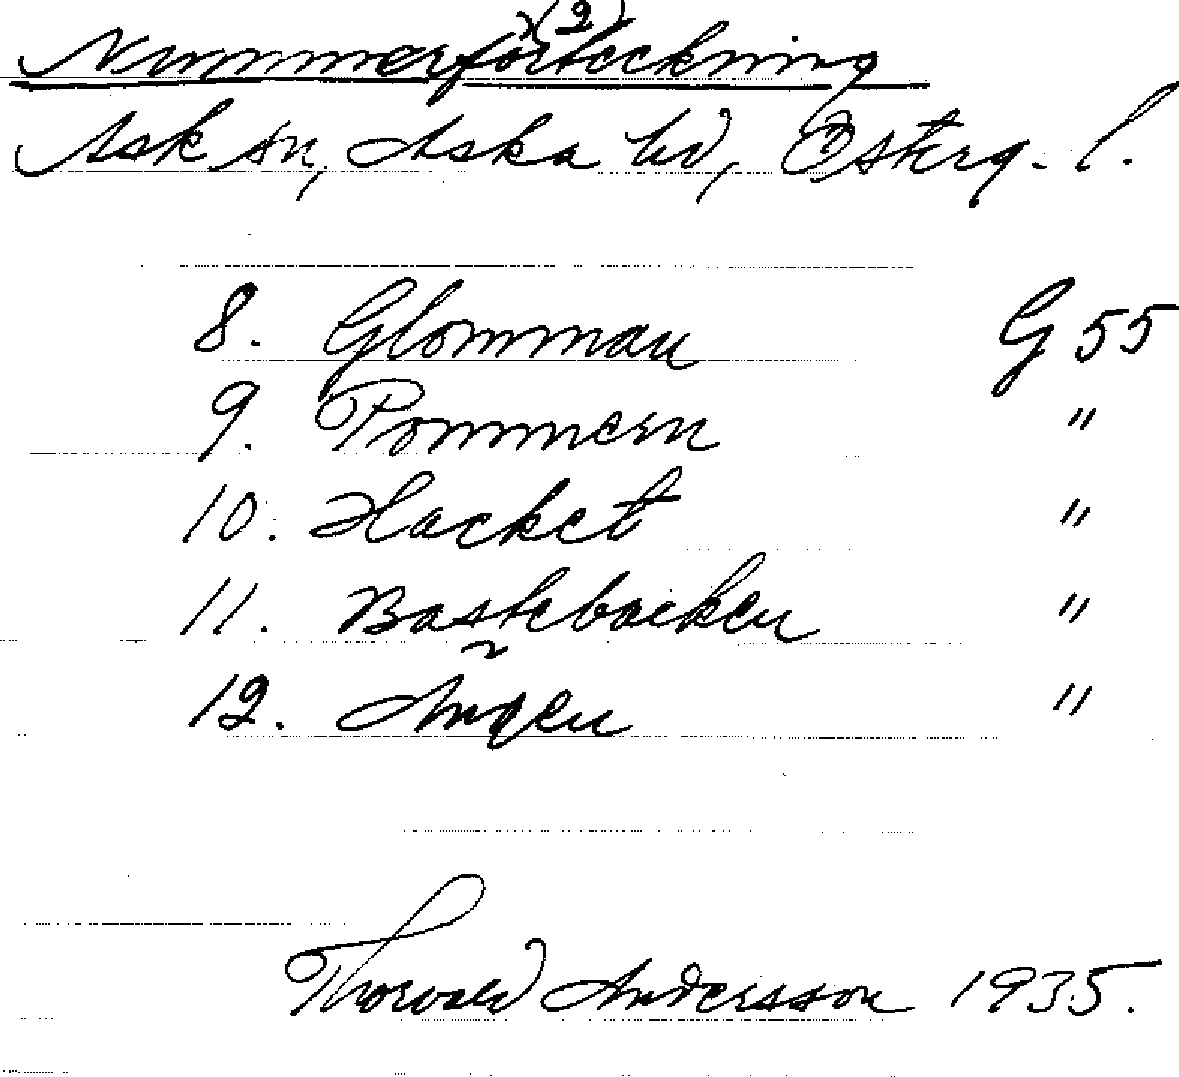 (2)
Nummerförteckning
Ask sn, Aska hd, Österg. l.
8. Glomman G 55
9. Pommern "
10. Hacket "
11. Bastebacken "
12. Ängen "
Thorvald Andersson 1935.